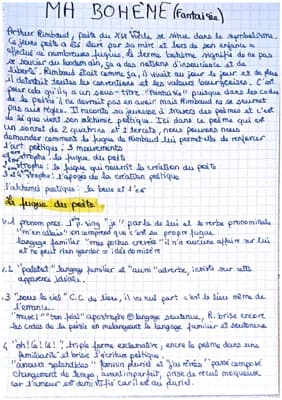 MA BOHÈME (Fantaisie)
Arthur Rimbaud, poète du XIX siècle se situe dans le symbolisme.
Ce jeune poète a été décrit par sa mère et lors de son enfance a
effectué de nombreuses fugues, le terme bohème signifie de ne pas
se soucier du lendemain, ça a des notions d'insouciance et de
liberté. Rimbaud était comme ça, il vivait au jour le jour et de plus
il détestait toutes les conventions et les valeurs bourgeoises. C'est
pour cela qu'il y a un sous-titre "Fantaisie" puisque dans les codes
de la poésie, il ne devrait pas en avoir mais Rimbaud ne se soumet
pas aux règles. Il raconte sa jeunesse à travers des poèmes et c'est
de là que vient son alchimie poétique. Ici dans ce poème qui est
un sonnet de 2 quatrains et 2 tercets, nous pouvons nous
demander comment la fugue de Rimbaud lui permet-elle de renforcer
l'art poétique : 3 mouvements
strophe : la fugue du poète
strophe : la fugue qui nourrit la création du poète
3 et 4 strophe : l'apogée de la création poétique
l'alchimie poétique : la boue et l'or
La fugue du poète
v.1 pronom pers. 1 p. sing "je" parle de lui et le verbe pronominal
"m'en allais" on comprend que c'est sa propre fugue
langage familier "mes poches crevées" il n'a aucune affaire sur lui
et ne peut rien garder = idée de misère
v.2 "paletot" langage familier et "aussi" adverbe, insiste sur cette
apparence idéale.
v.3 "sous le ciel" C.C de lieu, il va nul part c'est le lieu même de
l'errance.
"muse!" "ton féal" apostrophe langage soutenu, R. brise encore
les codes de la poésie en mélangeant le langage familier et soutenu
v.4 "oh! là! là!", triple forme exclamative, encre le poème dans une
familiarité et brise l'écriture poétique.
"amours splendides" féminin pluriel et "j'ai rêvées" passé composé
changement de temps, avant imparfait, prise de recul moqueuse
car l'amour est car il est au pluriel.